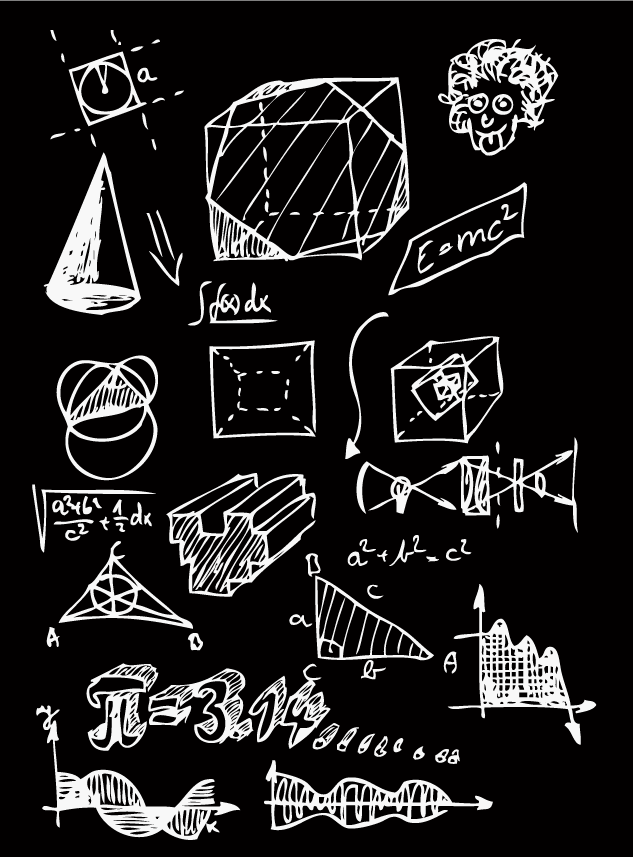 a
E=mc²
∫f(x)dx
√ a²+b²/c² + 1/2 dx
a²+b²=c²
C
A
B
B
a
c
C
b
A
π=3.14........
y
x